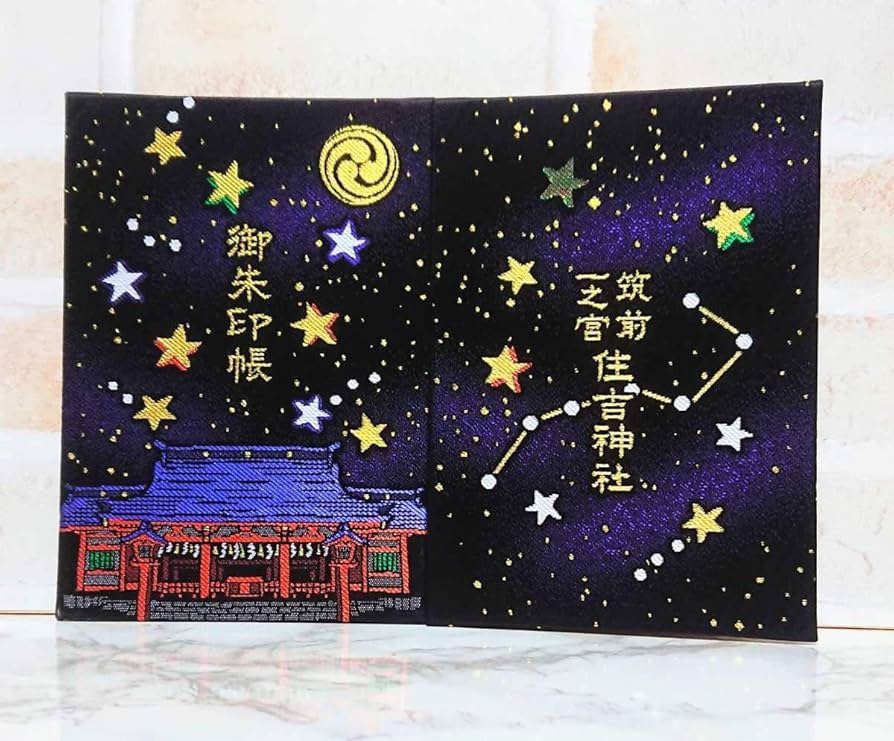 御朱印帳
筑前
一之宮
住吉神社